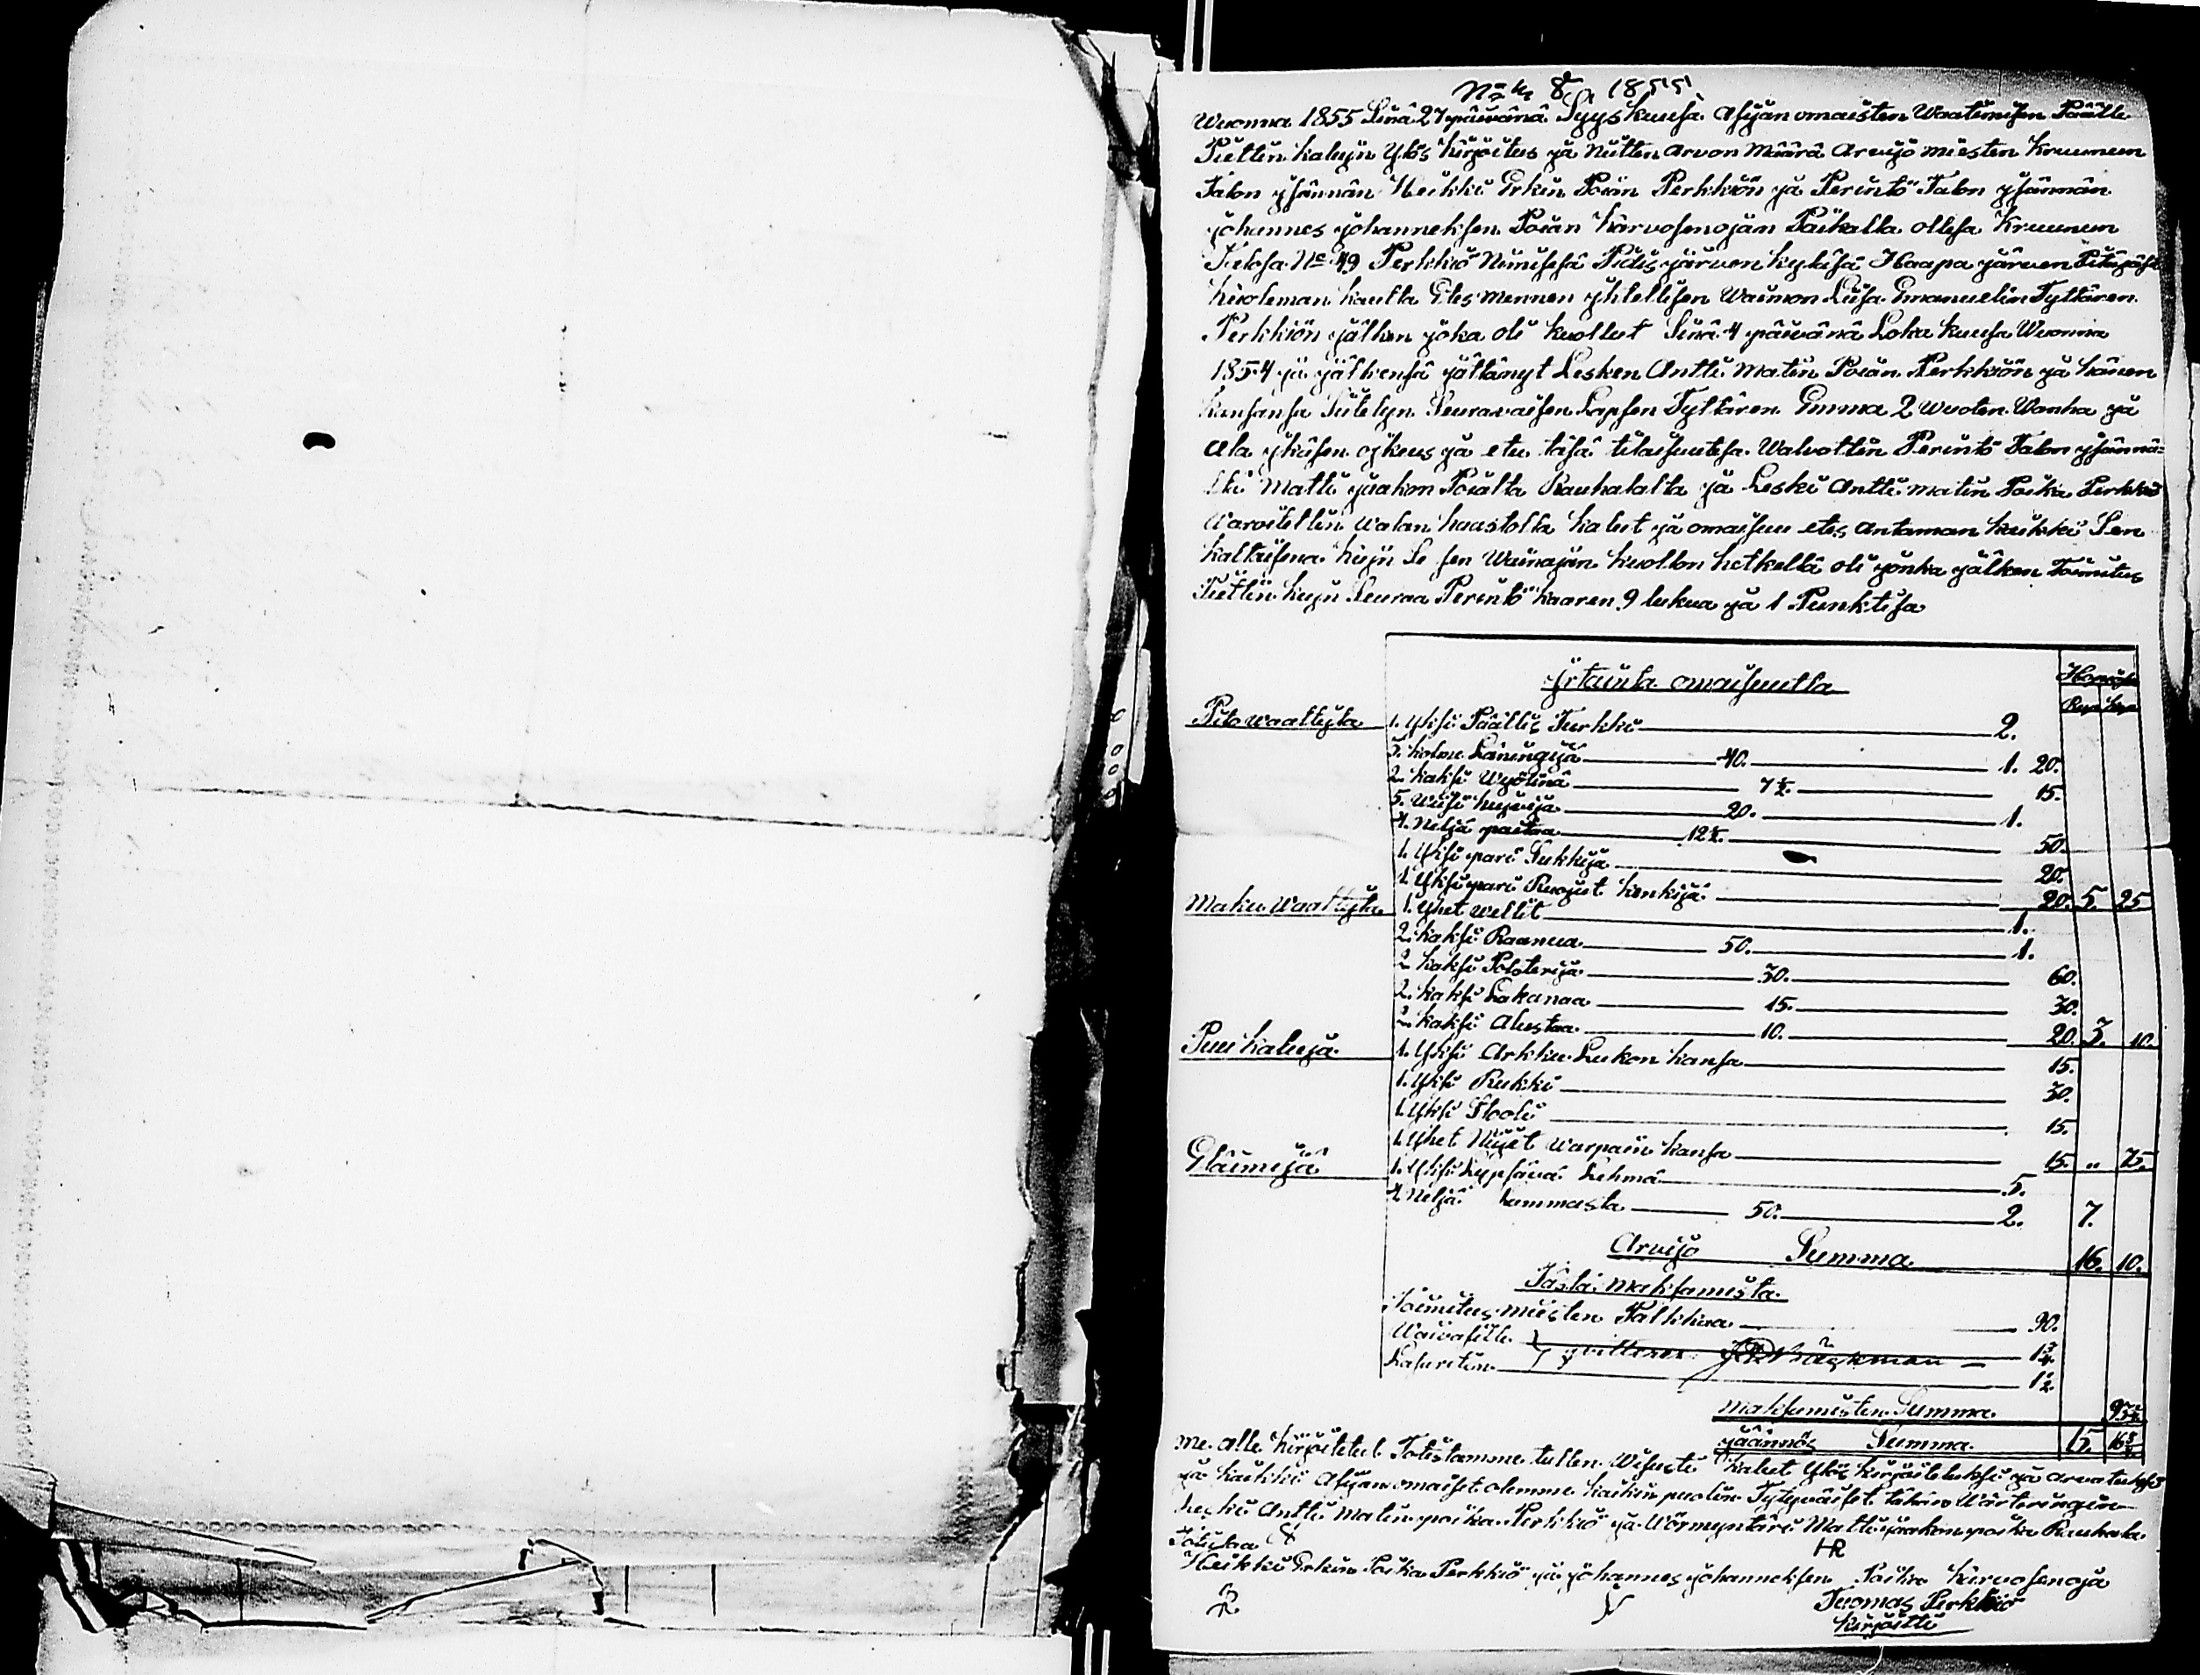 No 8, 1855.
Wuonna 1855 Sinä 27 päiwänä Syys kuusa Asijan omaisten Waatimisen Päälle
Piettin kalujn Ylös kirjoitus ja niitten arvon Määrä arwijo miesten Kruunun
Talon jsännän Heikki Erkin Poian Perkkiön ja Perintö Talon jsännän
johannes johanneksen Poian Kärvosenojan Paikalla ollesa Kruunun
Talosa No 49 Perkkiö Nimisesä Pidisjärwen kyläsä Haapa järwen Pitäjäsä
kuoleman kautta Etes mennen yhtellisen Waimon Liisa Emanuelin Tyttären
Perkkiön jälken joka oli kuollut Sinä 4 päiwänä Loka kuusa Wuonna
1854 ja jälkensä jättänyt Lesken Antti Matin Poian Perkkiön ja hänen
kansansa Siitetyn Seuravaisen Lapsen Tyttären Emma 2 Wuoten Wanha ja
Ala jkäisen ojkeus ja etu täsä tilaisuutesa Walvottin Perintö Talon jsännä-
ltä Matti jaakon Poialta Rauhalalta ja Leski Antti Matin Poika Perkkiö
Waroitettin walan kaustolla kalut ja omaisuu etes antaman kaikki Sen
kaltaisena kujn Se sen Wainajan kuollon hetkellä oli jonka jälken Toimitus
Piettin kujn Seuraa Perintö kaaren 9 lukua ja 1 Punktisa
jrtainta omaisuutta
Hopiasa
Rup kop
Pito waattejta 1. Yksi Päällis Turkki 2.
3. kolme Läninkijä 40. 1. 20.
2. kaksi Wyölinä 7 1/2. 15.
5. wiisi hujwija 20. 1.
4. Neljä paitaa 12 1/2. 50.
1. Yksi pari Sukkija 20.
1. Yksi pari Ruojut kenkijä 20. 5. 25
Maku Waattejta 1. Yhet wellit 1.
2. kaksi Raanua 50. 1.
2. kaksi Polsterija 30. 60.
2. kaksi Lakanaa 15. 30.
2. kaksi Alustaa 10. 20. 3. 10.
Puu kaluja 1. Yksi Arkku Lukon kansa 15.
1. Yksi Rukki 30.
1. Yksi Stooli 15.
1. Yhet Niijet warpain kansa 15. " 75.
Eläimijä 1. Yksi Lypsävä Lehmä 5.
4. Neljä Lammasta 50. 2. 7.
Arvijo Summa 16. 10.
Tästä maksamista
Toimitus miesten Palkkaa 90.
Waivasille 1 3/4.
Lasaretin 1 1/2.
Maksamisten Summa
jäännös Summa 15.
me alle kirjoitetut Totistamme tullen Wisusti kalut Ylös kirjoitetuksi ja arvatuksi
ja kaikki Asijan omaiset olemme kaikin puolin Tytyväiset tähän Wärteringin
Leski Antti Matin poika Perkkiö ja Wörmyntäri Matti jaakon poika Rauhala
HR
Heikki Erkin Poika Perkkiö ja johannes johanneksen Poika Kärvosenoja
Tuomas Perkkiö
kirjoitti